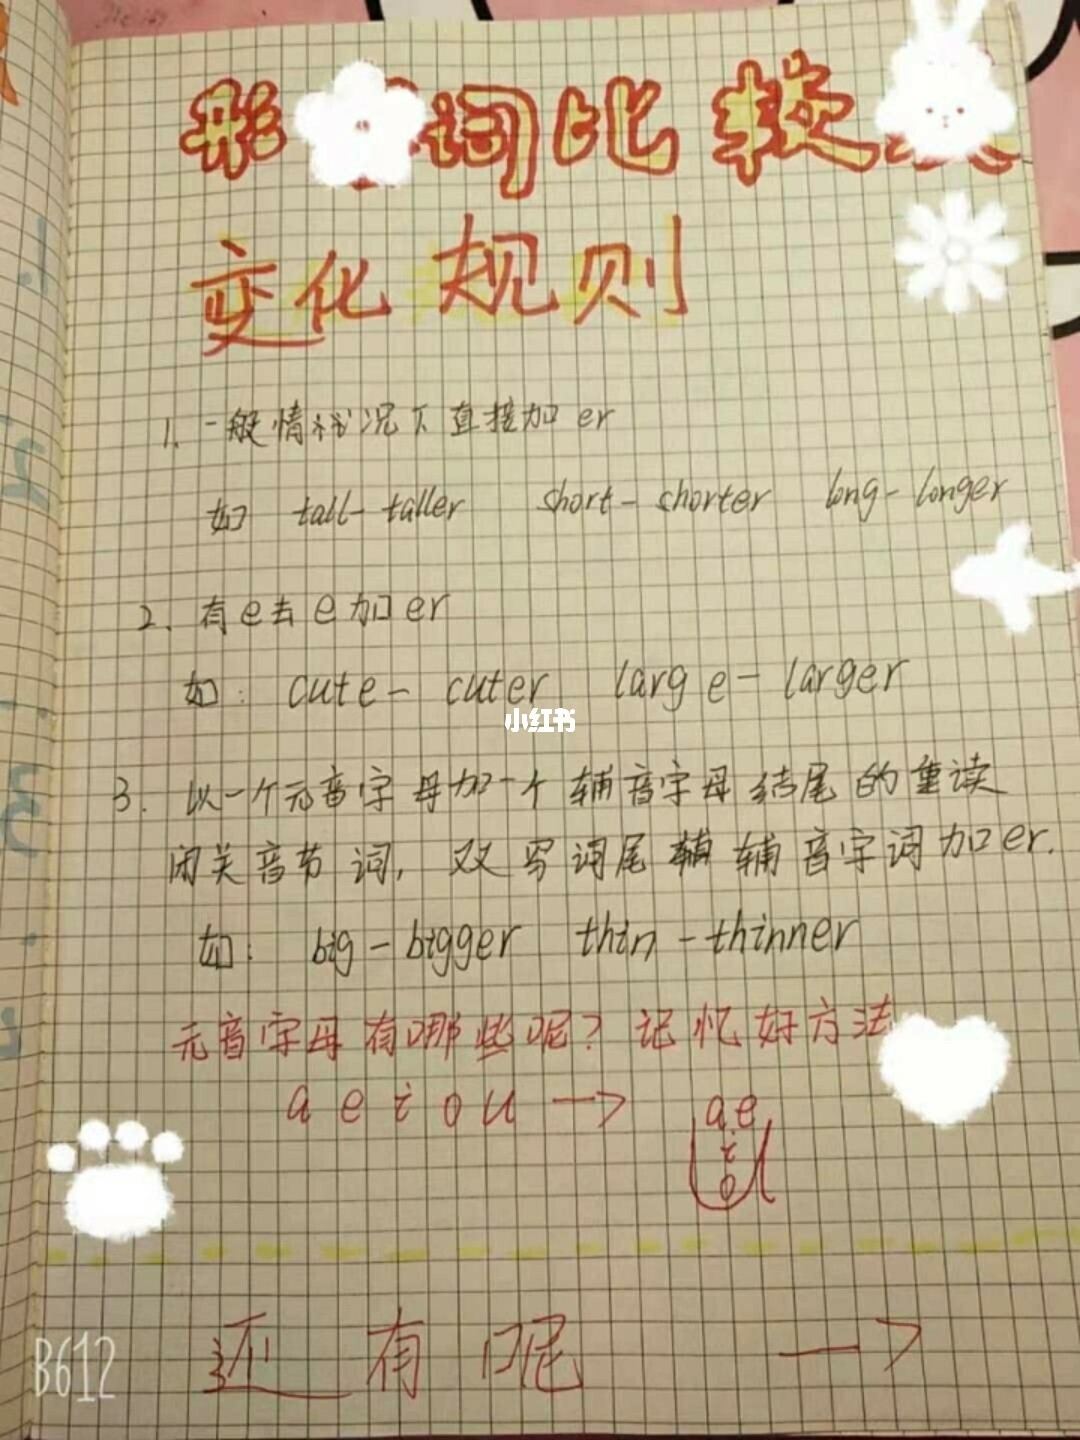 形 词比较
变化规则
1. 一般情状况下直接加er
如 tall-taller short-shorter long-longer
2. 有e去e加er
如: cute-cuter large-larger
小红书
3. 以一个元音字母加一个辅音字母结尾的重读
闭关音节词, 双写词尾辅辅音字词加er.
如: big-bigger thin-thinner
元音字母有哪些呢? 记忆好方法
a e i o u → a e
i
o
u
还有呢 →
B612